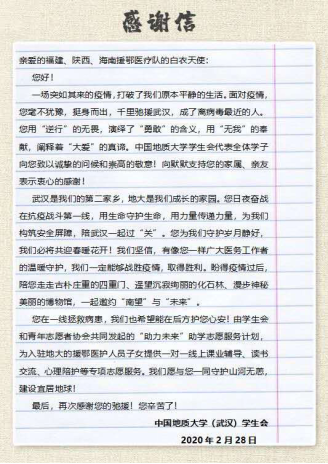 感谢信
亲爱的福建、陕西、海南援鄂医疗队的白衣天使：
您好！
一场突如其来的疫情，打破了我们原本平静的生活。面对疫情，
您毫不犹豫，挺身而出，千里驰援武汉，成了离病毒最近的人。
您用“逆行”的无畏，演绎了“勇敢”的含义，用“无我”的奉
献，阐释着“大爱”的真谛。中国地质大学学生会代表全体学子
向您致以诚挚的问候和崇高的敬意！向默默支持您的家属、亲友
表示衷心的感谢！
武汉是我们的第二家乡，地大是我们成长的家园。您日夜奋战
在抗疫战斗第一线，用生命守护生命，用力量传递力量，为我们
构筑安全屏障，陪武汉一起过“关”。您为我们守护岁月静好，
我们必将共迎春暖花开！我们坚信，有像您一样广大医务工作者
的温暖守护，我们一定能够战胜疫情，取得胜利。盼得疫情过后，
陪您走走古朴庄重的四重门、遥望沉寂绚丽的化石林、漫步神秘
美丽的博物馆，一起邀约“南望”与“未来”。
您在一线拯救病患，我们也希望能在后方护您心安！由学生会
和青年志愿者协会共同发起的“助力未来”助学志愿服务计划，
为入驻地大的援鄂医护人员子女提供一对一线上课业辅导、读书
交流、心理陪护等专项志愿服务。我们愿与您一同守护山河无恙，
建设宜居地球！
最后，再次感谢您的驰援！您辛苦了！
中国地质大学（武汉）学生会
2020 年 2 月 28 日